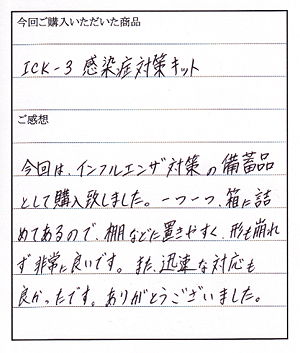 今回ご購入いただいた商品
ICK-3 感染症対策キット
ご感想
今回は、インフルエンザ対策の備蓄品
として購入致しました。一つ一つ、箱に詰
めてあるので、棚などに置きやすく、形も崩れ
ず非常に良いです。また、迅速な対応も
良かったです。ありがとうございました。